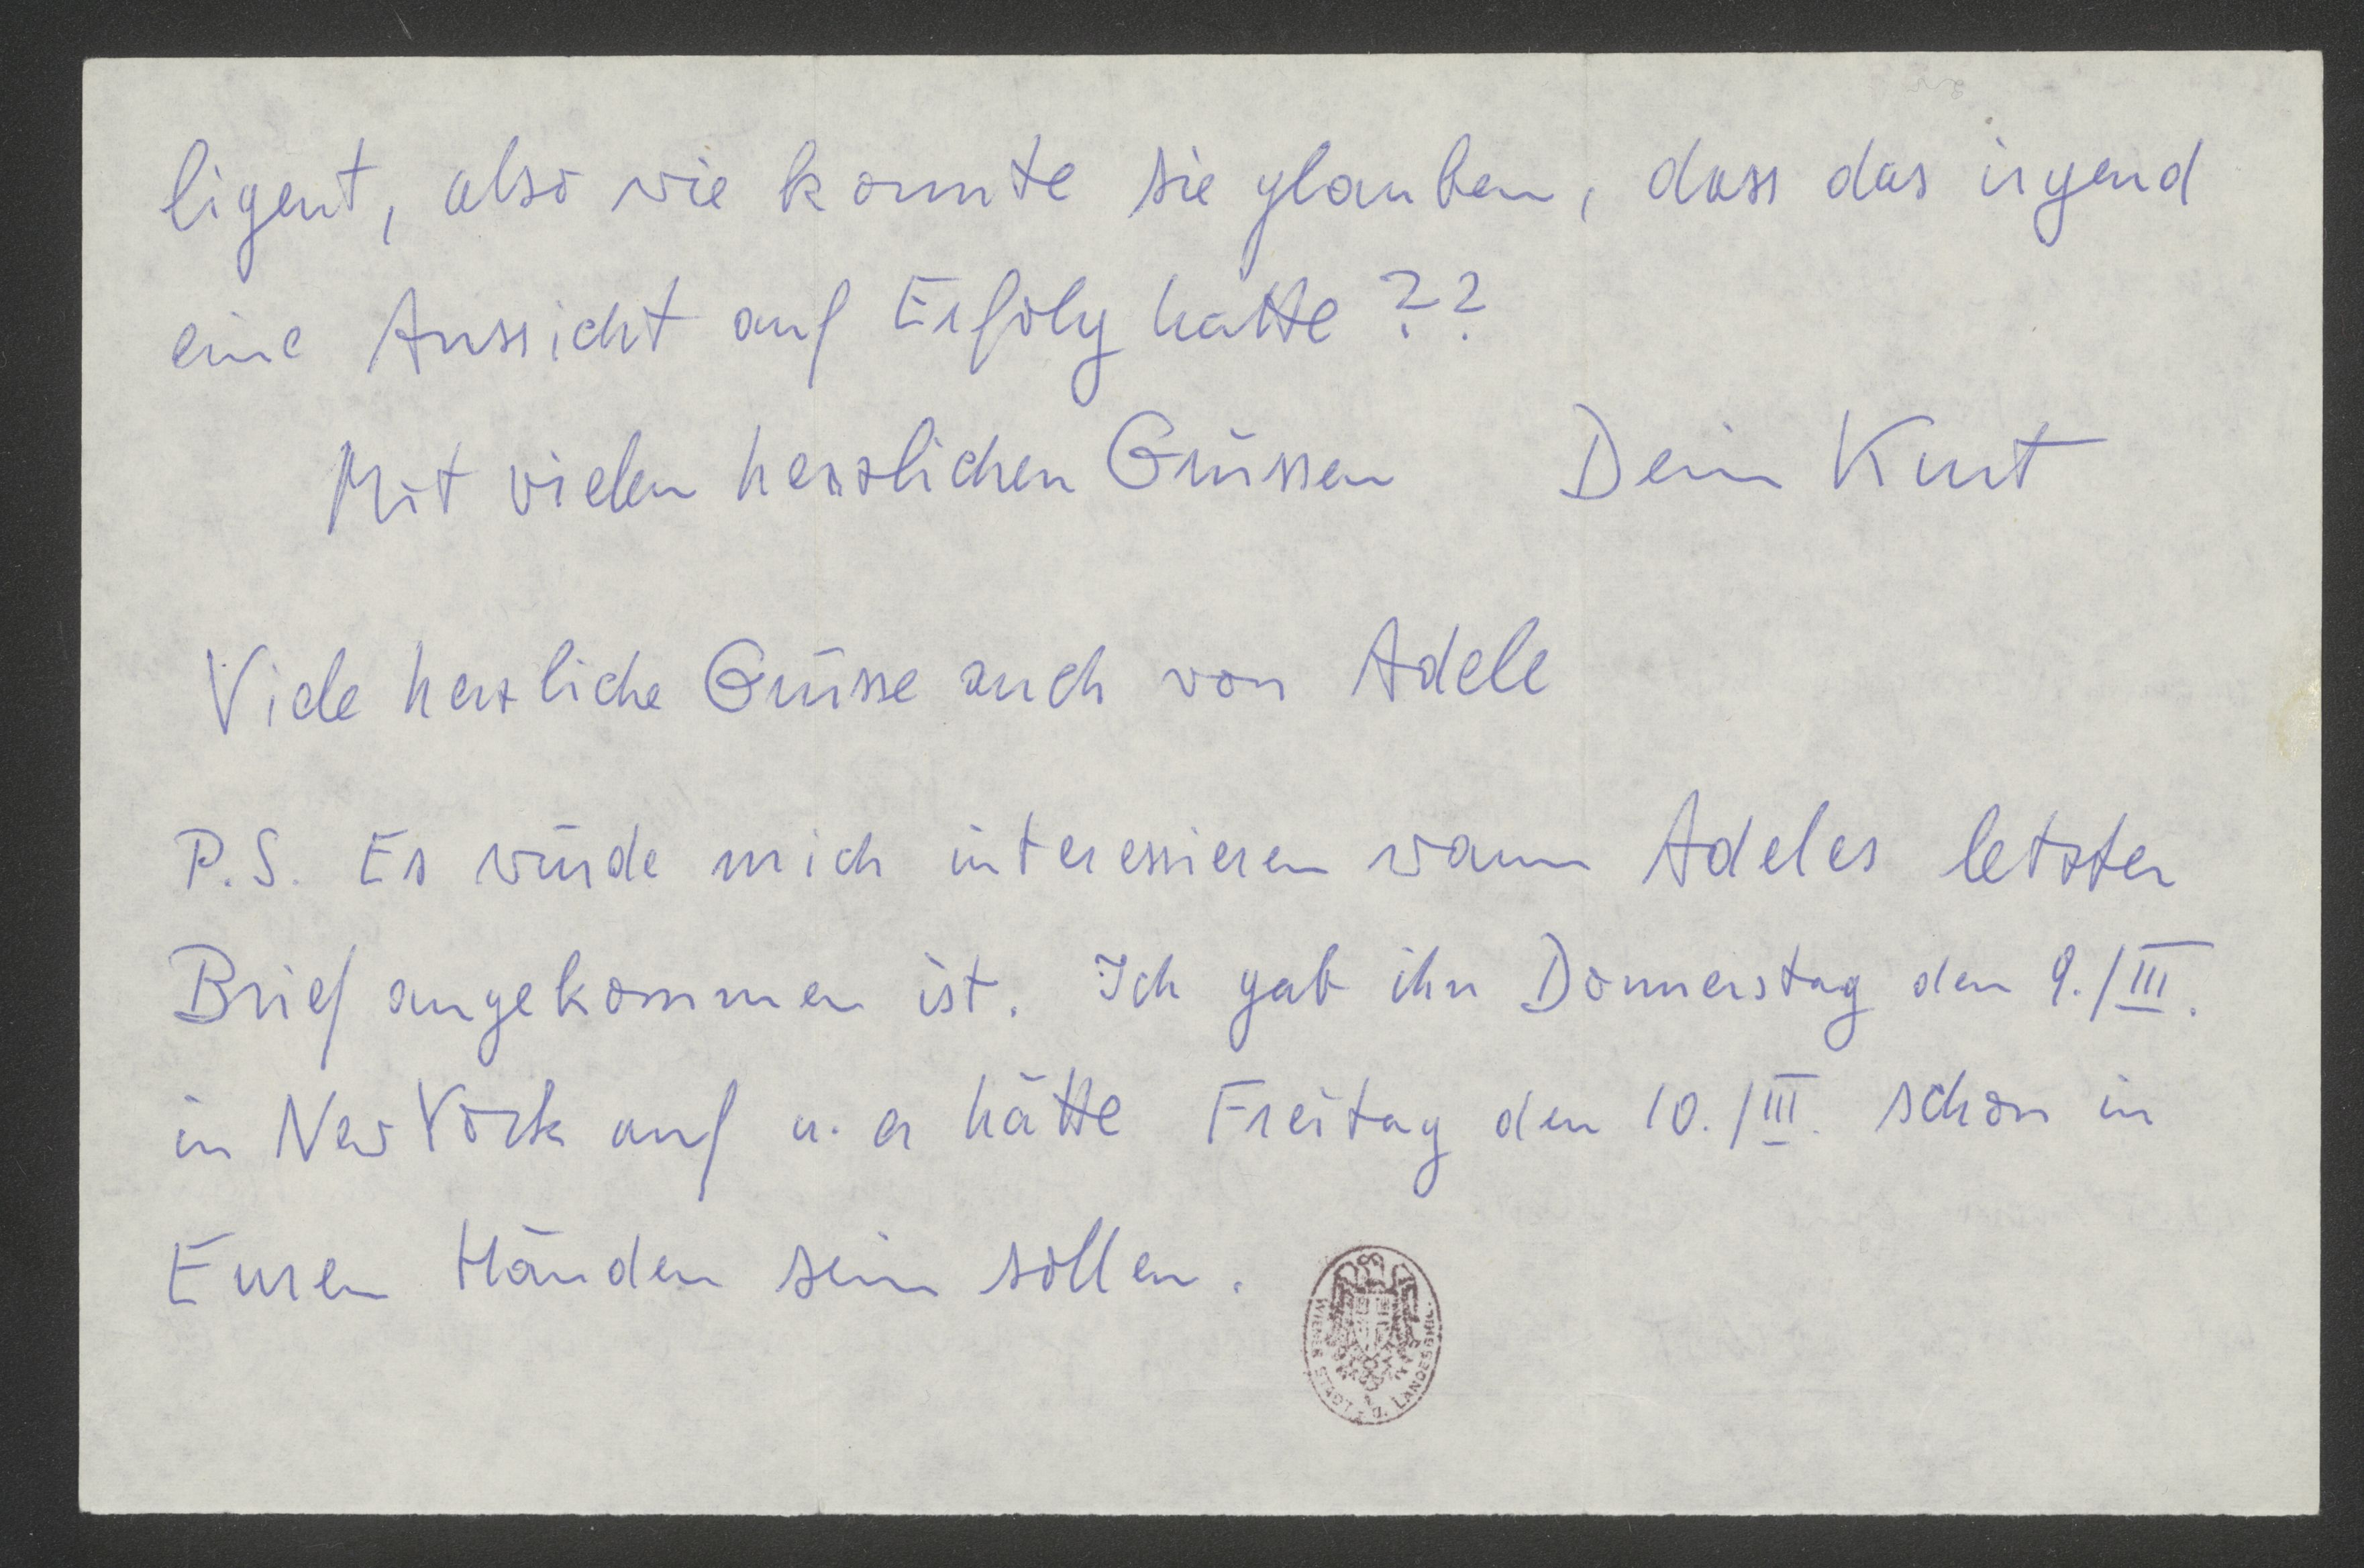 ligent, also wie konnte sie glauben, dass das irgend
eine Aussicht auf Erfolg hatte ??
Mit vielen herzlichen Grüssen Dein Kurt
Viele herzliche Grüsse auch von Adele
P.S. Es würde mich interessieren wann Adeles letzter
Brief angekommen ist. Ich gab ihn Donnerstag den 9./III.
in New York auf u. er hätte Freitag den 10./III. schon in
Euren Händen sein sollen.
WIENER STADT- U. LANDESBIBL.